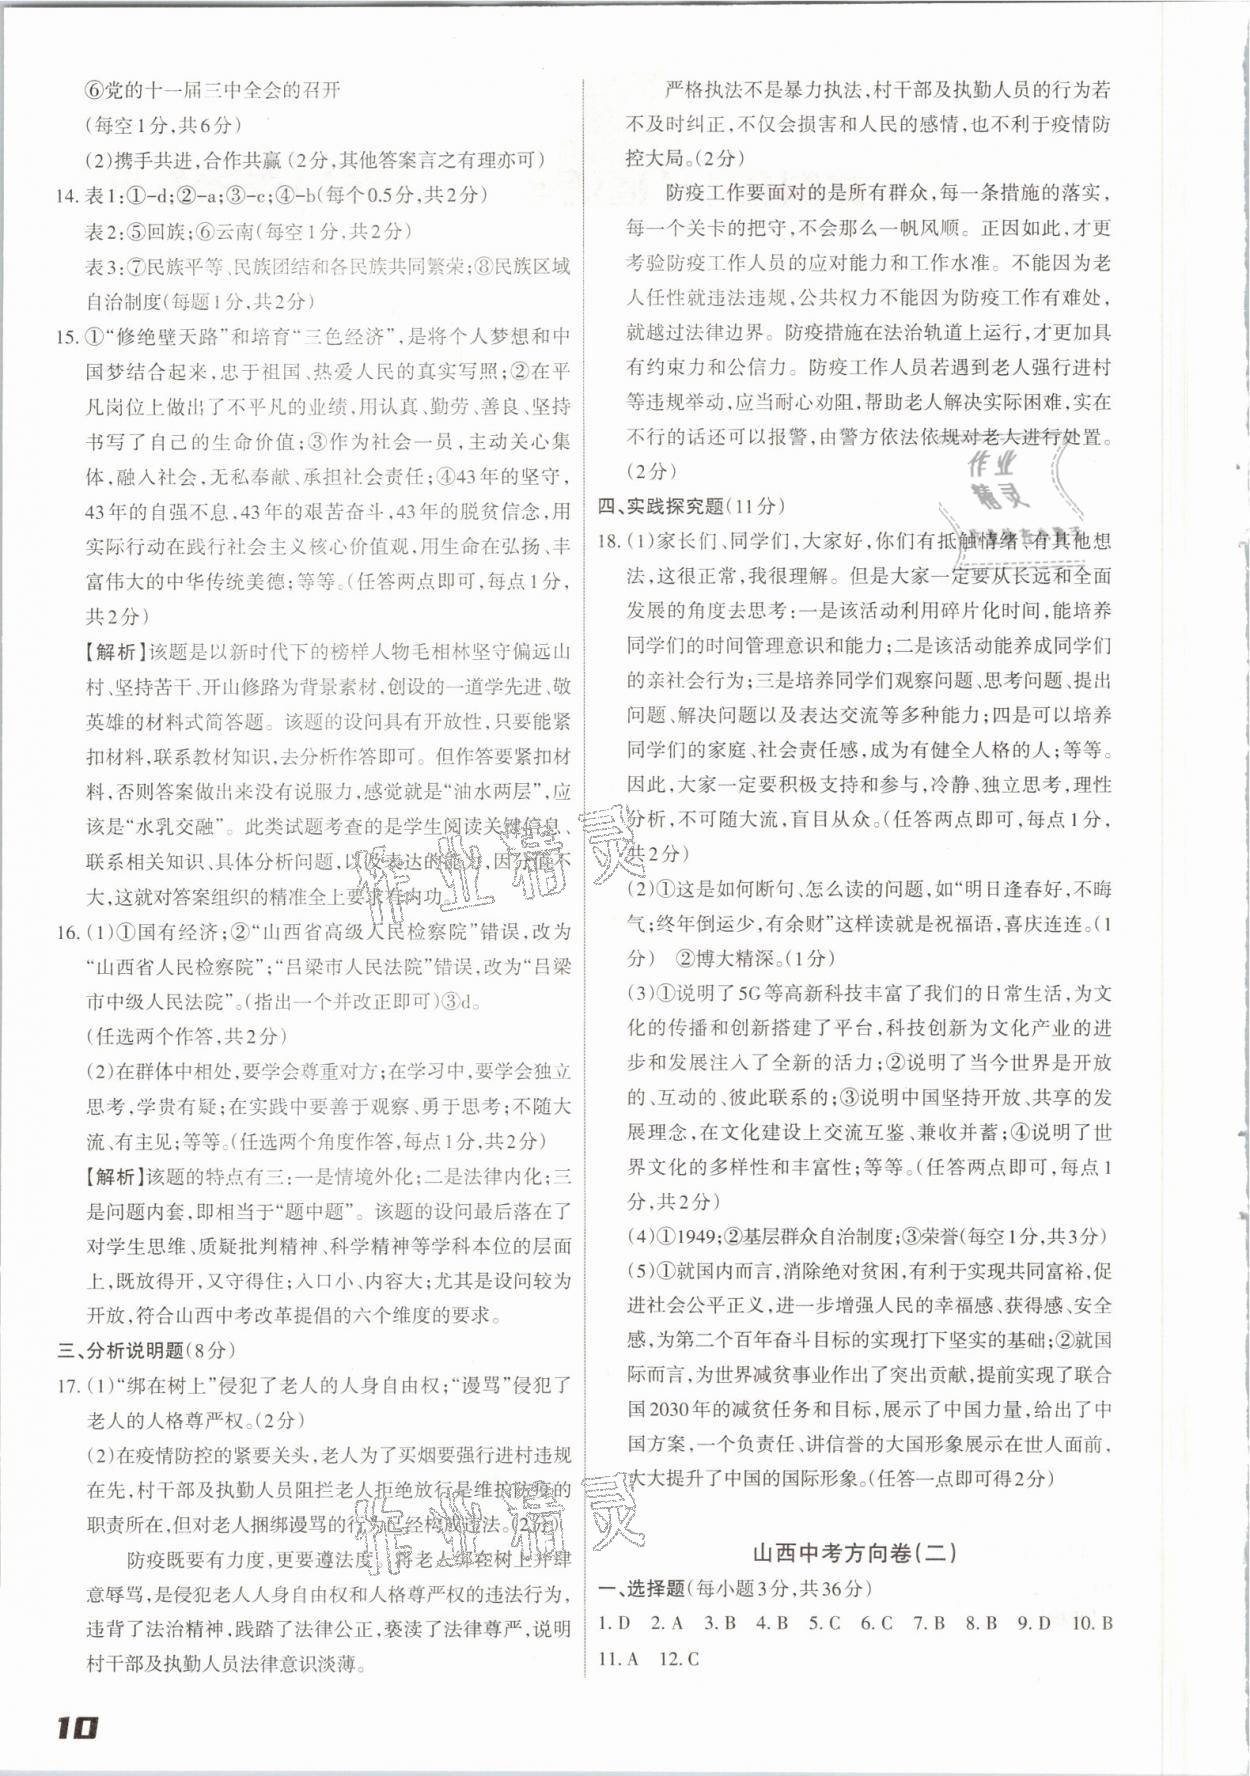 ⑥党的十一届三中全会的召开
(每空1分,共6分)
(2)携手共进,合作共赢(2分,其他答案言之有理亦可)
14. 表1:①-d;②-a;③-c;④-b(每个0.5分,共2分)
表2:⑤回族;⑥云南(每空1分,共2分)
表3:⑦民族平等、民族团结和各民族共同繁荣;⑧民族区域
自治制度(每题1分,共2分)
15. ①“修绝壁天路”和培育“三色经济”,是将个人梦想和中
国梦结合起来,忠于祖国、热爱人民的真实写照;②在平
凡岗位上做出了不平凡的业绩,用认真、勤劳、善良、坚持
书写了自己的生命价值;③作为社会一员,主动关心集
体,融入社会,无私奉献、承担社会责任;④43年的坚守,
43年的自强不息,43年的艰苦奋斗,43年的脱贫信念,用
实际行动在践行社会主义核心价值观,用生命在弘扬、丰
富伟大的中华传统美德;等等。(任答两点即可,每点1分,
共2分)
【解析】该题是以新时代下的榜样人物毛相林坚守偏远山
村、坚持苦干、开山修路为背景素材,创设的一道学先进、敬
英雄的材料式简答题。该题的设问具有开放性,只要能紧
扣材料,联系教材知识,去分析作答即可。但作答要紧扣材
料,否则答案做出来没有说服力,感觉就是“油水两层”,应
该是“水乳交融”。此类试题考查的是学生阅读关键信息、
联系相关知识、具体分析问题,以及表达的能力,因分值不
大,这就对答案组织的精准全上要求有内功。
16. (1)①国有经济;②“山西省高级人民检察院”错误,改为
“山西省人民检察院”;“吕梁市人民法院”错误,改为“吕梁
市中级人民法院”。(指出一个并改正即可)③d。
(任选两个作答,共2分)
(2)在群体中相处,要学会尊重对方;在学习中,要学会独立
思考,学贵有疑;在实践中要善于观察、勇于思考;不随大
流、有主见;等等。(任选两个角度作答,每点1分,共2分)
【解析】该题的特点有三:一是情境外化;二是法律内化;三
是问题内套,即相当于“题中题”。该题的设问最后落在了
对学生思维、质疑批判精神、科学精神等学科本位的层面
上,既放得开,又守得住;入口小、内容大;尤其是设问较为
开放,符合山西中考改革提倡的六个维度的要求。
三、分析说明题(8分)
17. (1)“绑在树上”侵犯了老人的人身自由权;“谩骂”侵犯了
老人的人格尊严权。(2分)
(2)在疫情防控的紧要关头,老人为了买烟要强行进村违规
在先,村干部及执勤人员阻拦老人拒绝放行是维护防疫的
职责所在,但对老人捆绑谩骂的行为已经构成违法。(2分)
防疫既要有力度,更要遵法度。将老人绑在树上并肆
意辱骂,是侵犯老人人身自由权和人格尊严权的违法行为,
违背了法治精神,践踏了法律公正,亵渎了法律尊严,说明
村干部及执勤人员法律意识淡薄。
严格执法不是暴力执法,村干部及执勤人员的行为若
不及时纠正,不仅会损害和人民的感情,也不利于疫情防
控大局。(2分)
防疫工作要面对的是所有群众,每一条措施的落实,
每一个关卡的把守,不会那么一帆风顺。正因如此,才更
考验防疫工作人员的应对能力和工作水准。不能因为老
人任性就违法违规,公共权力不能因为防疫工作有难处,
就越过法律边界。防疫措施在法治轨道上运行,才更加具
有约束力和公信力。防疫工作人员若遇到老人强行进村
等违规举动,应当耐心劝阻,帮助老人解决实际困难,实在
不行的话还可以报警,由警方依法依规对老人进行处置。
(2分)
四、实践探究题(11分)
18. (1)家长们、同学们,大家好,你们有抵触情绪、有其他想
法,这很正常,我很理解。但是大家一定要从长远和全面
发展的角度去思考:一是该活动利用碎片化时间,能培养
同学们的时间管理意识和能力;二是该活动能养成同学们
的亲社会行为;三是培养同学们观察问题、思考问题、提出
问题、解决问题以及表达交流等多种能力;四是可以培养
同学们的家庭、社会责任感,成为有健全人格的人;等等。
因此,大家一定要积极支持和参与,冷静、独立思考,理性
分析,不可随大流,盲目从众。(任答两点即可,每点1分,
共2分)
(2)①这是如何断句、怎么读的问题,如“明日逢春好,不晦
气;终年倒运少,有余财”这样读就是祝福语,喜庆连连。(1
分) ②博大精深。(1分)
(3)①说明了5G等高新科技丰富了我们的日常生活,为文
化的传播和创新搭建了平台,科技创新为文化产业的进
步和发展注入了全新的活力;②说明了当今世界是开放
的、互动的、彼此联系的;③说明中国坚持开放、共享的发
展理念,在文化建设上交流互鉴、兼收并蓄;④说明了世
界文化的多样性和丰富性;等等。(任答两点即可,每点1
分,共2分)
(4)①1949;②基层群众自治制度;③荣誉(每空1分,共3分)
(5)①就国内而言,消除绝对贫困,有利于实现共同富裕,促
进社会公平正义,进一步增强人民的幸福感、获得感、安全
感,为第二个百年奋斗目标的实现打下坚实的基础;②就国
际而言,为世界减贫事业作出了突出贡献,提前实现了联合
国2030年的减贫任务和目标,展示了中国力量,给出了中
国方案,一个负责任、讲信誉的大国形象展示在世人面前,
大大提升了中国的国际形象。(任答一点即可得2分)
山西中考方向卷(二)
一、选择题(每小题3分,共36分)
1. D 2. A 3. B 4. B 5. C 6. C 7. B 8. B 9. D 10. B
11. A 12. C
10
作业精灵
作业精灵
作业
精灵